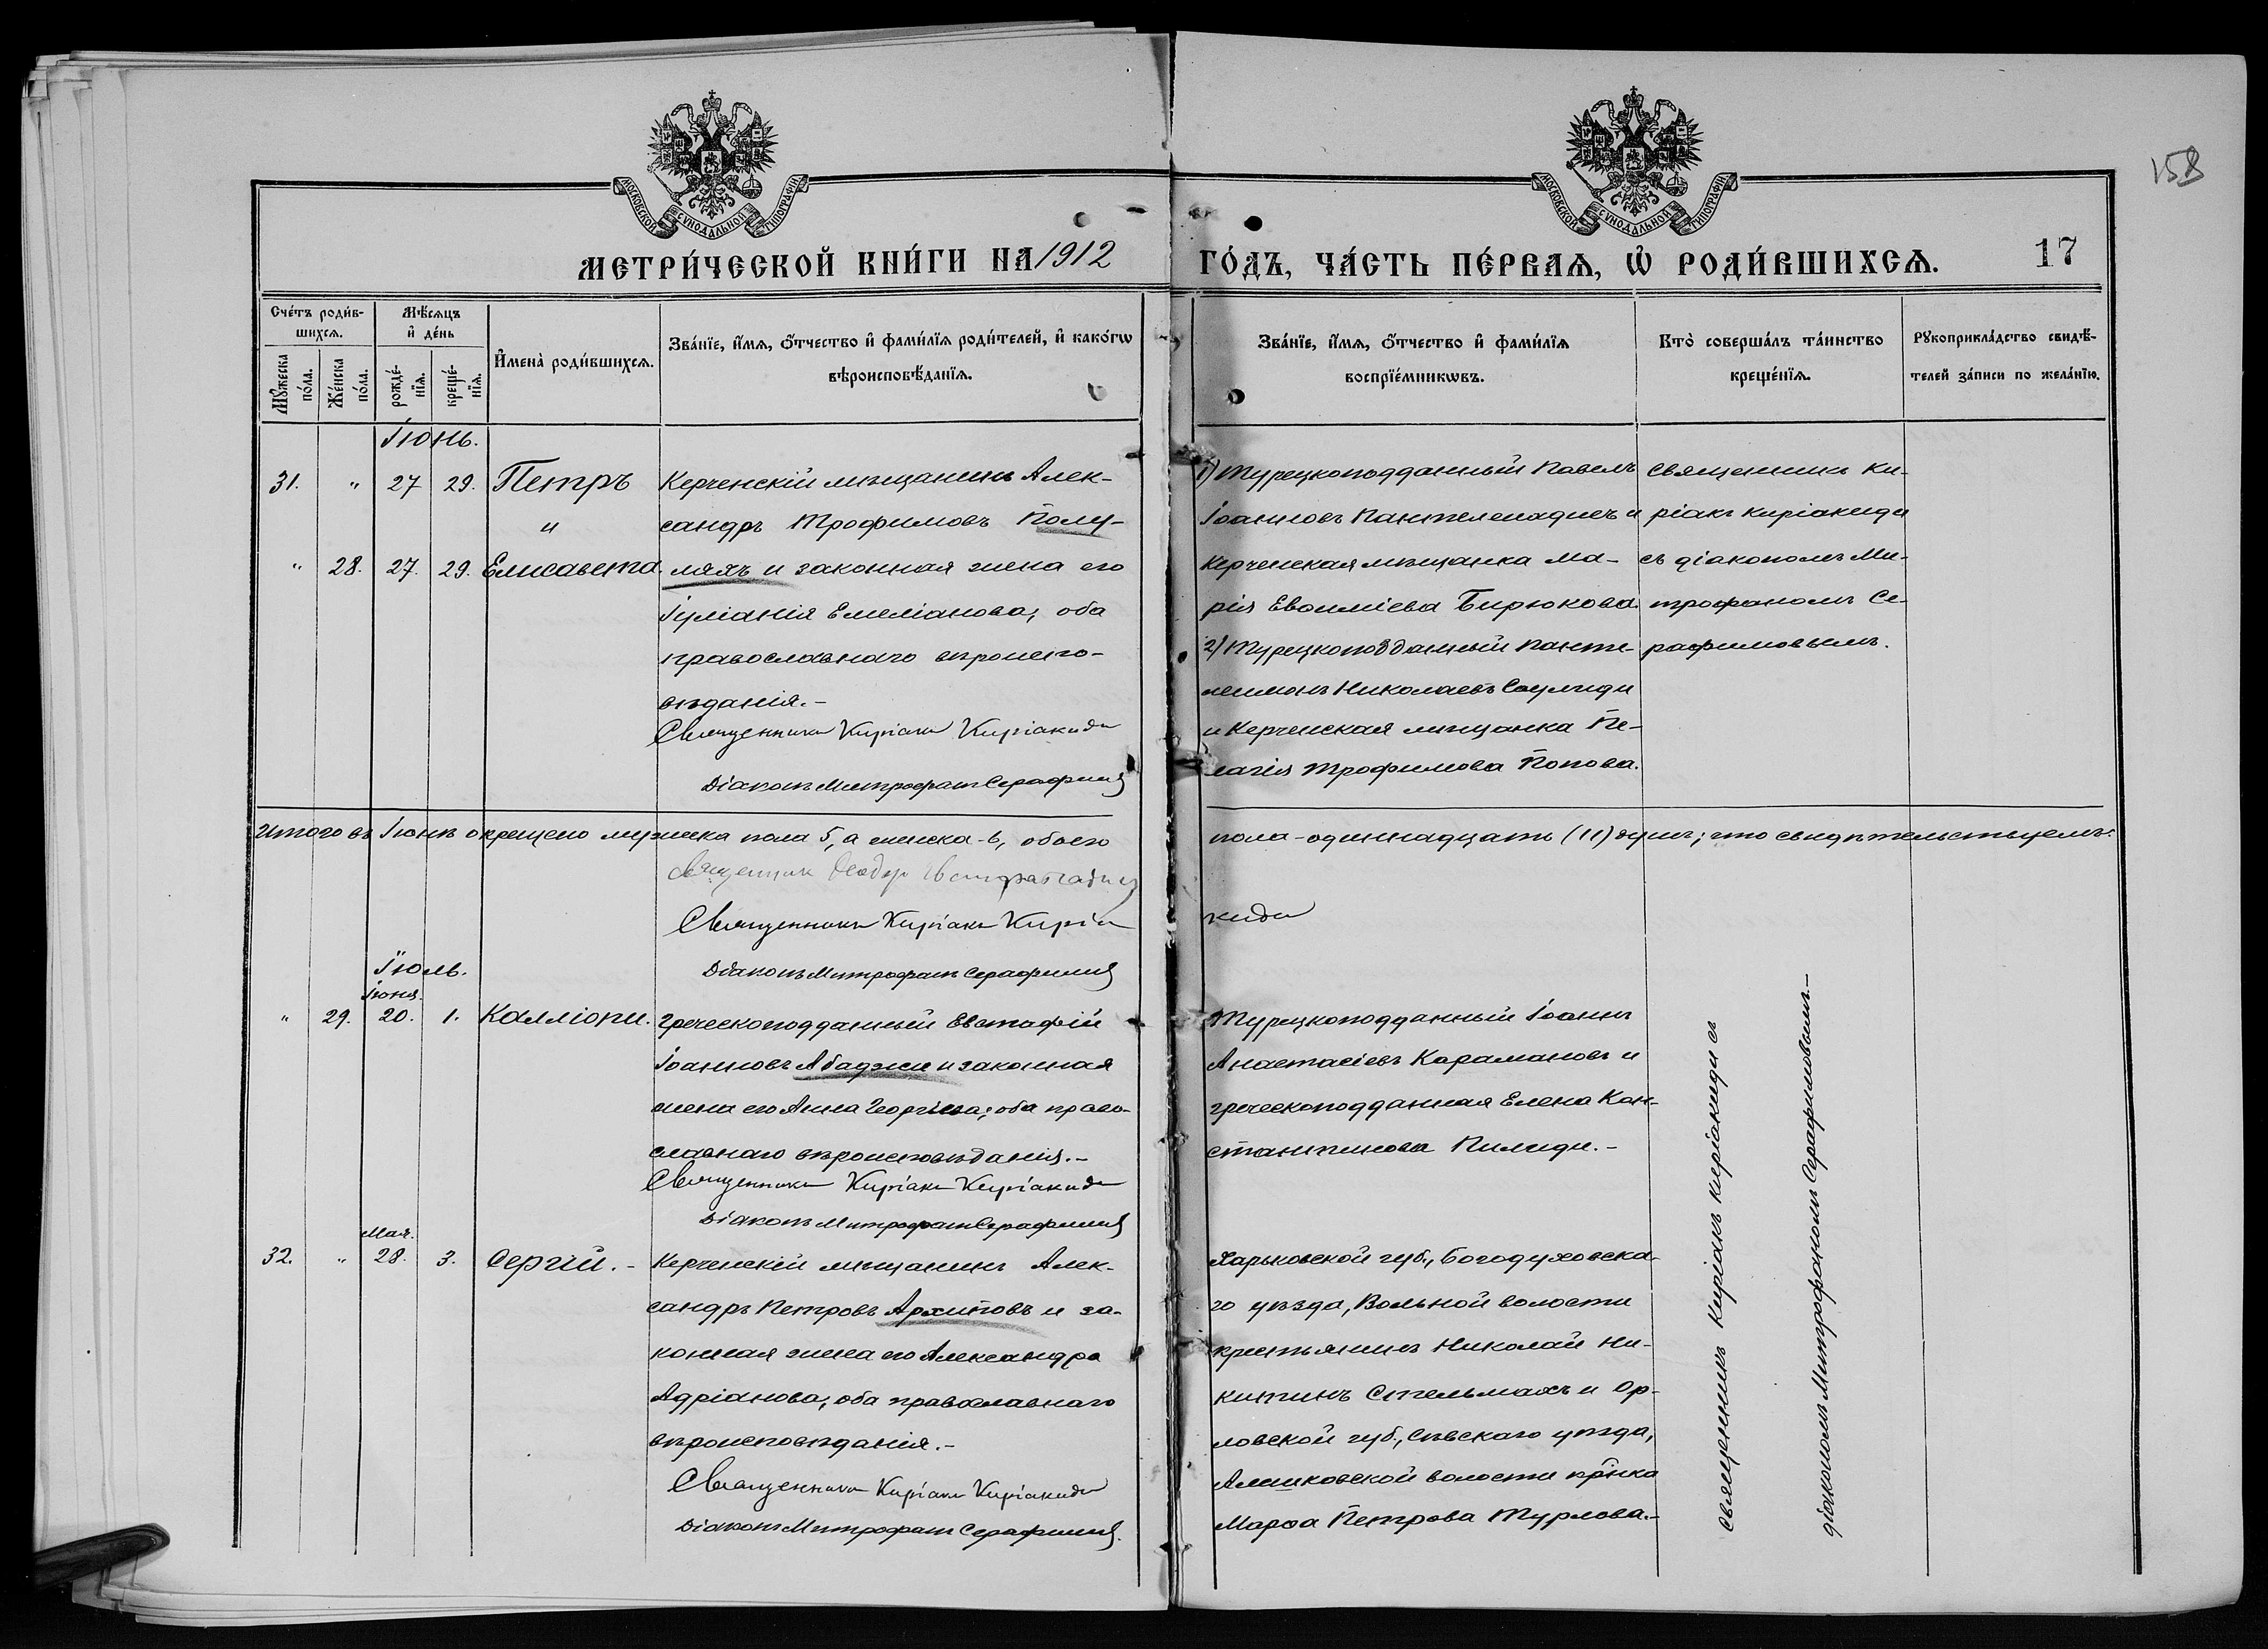 158
МОСКОВСКОЙ СУНОДАЛЬНОЙ ТИПОГРАФІИ
МОСКОВСКОЙ СУНОДАЛЬНОЙ ТИПОГРАФІИ
МЕТРИ́ЧЕСКОЙ КНИ́ГИ НА 1912 ГО́ДЪ, ЧА́СТЬ ПЕ́РВАѦ, Ѡ҆ РОДИ́ВШИХСѦ. 17
Сче́тъ роди́в-
шихсѧ.
Мꙋ́жеска
по́ла.
Же́нска
по́ла.
Мѣ́сѧцъ
и҆ де́нь
рожде́-
нїѧ.
креще́-
нїѧ.
И҆мена̀ роди́вшихсѧ.
Зва́нїе, и҆́мѧ, ѻ҆́тчество и҆ фами́лїѧ роди́телей, и҆ како́гѡ
вѣроисповѣ́данїѧ.
Зва́нїе, и҆́мѧ, ѻ҆́тчество и҆ фами́лїѧ
воспрїе́мникѡвъ.
Кто̀ соверша́лъ та́инство
креще́нїѧ.
Рꙋкоприкла́дство свидѣ́-
телей за́писи по жела́нїю.
Іюнь.
31. " 27 29. Петръ
и
" 28. 27. 29. Елисавета
Керченскій мѣщанинъ Алек-
сандръ Трофимовъ Полу-
ляхъ и законная жена его
Іуліанія Емеліанова; оба
православнаго вѣроиспо-
вѣданія.-
Священникъ Киріакъ Киріакиди
Діаконъ Митрофанъ Серафимовъ
1) Турецкоподданный Павелъ
Іоанновъ Пантелеиадисъ и
Керченская мѣщанка Ма-
рія Евѳиміева Бирюкова.
2) Турецкоподданный Панте-
леимонъ Николаевъ Саулиди
и Керченская мѣщанка Пе-
лагія Трофимова Попова.
Священникъ Ки-
ріакъ Киріакиди
съ діакономъ Ми-
трофаномъ Се-
рафимовымъ.
Итого въ Іюнѣ окрещено мужеска пола 5, а женска-6, обоего пола-одиннадцать (11) душъ; что свидѣтельствуемъ:
Священник Ѳеодор
Священникъ Киріакъ Киріакиди
Діаконъ Митрофанъ Серафимовъ
Іюль.
Іюня.
" 29. 20. 1. Калліопи.
Греческоподданный Евстафій
Іоанновъ Абаджи и законная
жена его Анна Георгіева; оба право-
славнаго вѣроисповѣданія.-
Священникъ Киріакъ Киріакиди
Діаконъ Митрофанъ Серафимовъ
Турецкоподданный Іоаннъ
Анастасіевъ Карамановъ и
греческоподданная Елена Кон-
стантинова Пилиди.-
Мая.
32. " 28. 3. Сергій.-
Керченскій мѣщанинъ Алек-
сандръ Петровъ Архиповъ и за-
конная жена его Александра
Адріанова; оба православнаго
вѣроисповѣданія.-
Священникъ Киріакъ Киріакиди
Діаконъ Митрофанъ Серафимовъ.
Харьковской губ., Богодуховска-
го уѣзда, Вольной волости
крестьянинъ Николай Ни-
китинъ Стельмахъ и Ор-
ловской губ., Сѣвскаго уѣзда,
Алешковской волости кр-нка
Марѳа Петрова Турлова.-
Священникъ Киріакъ Киріакиди съ
діакономъ Митрофаномъ Серафимовымъ.-